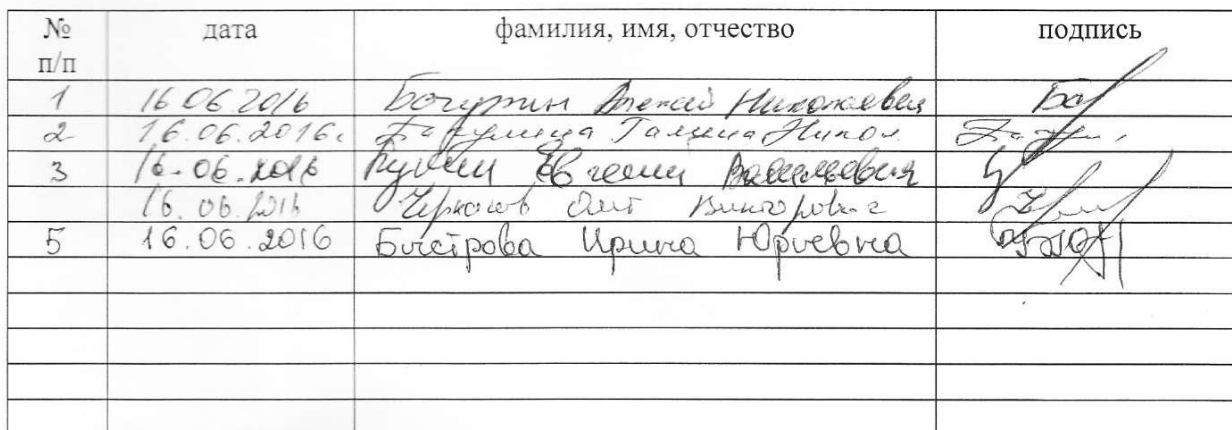 № дата фамилия, имя, отчество подпись
п/п
1 16 06 2016 Алексей Николаевич
2 16.06.2016г. Галина Никол.
3 16.06.2016 Евгений Васильевич
16.06.2016 Черкасов Олег Викторович
5 16.06.2016 Быстрова Ирина Юрьевна